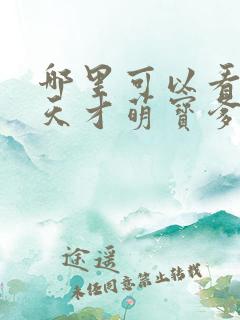 哪里可以看
天才萌寶爹
途遥
未经同意禁止转载